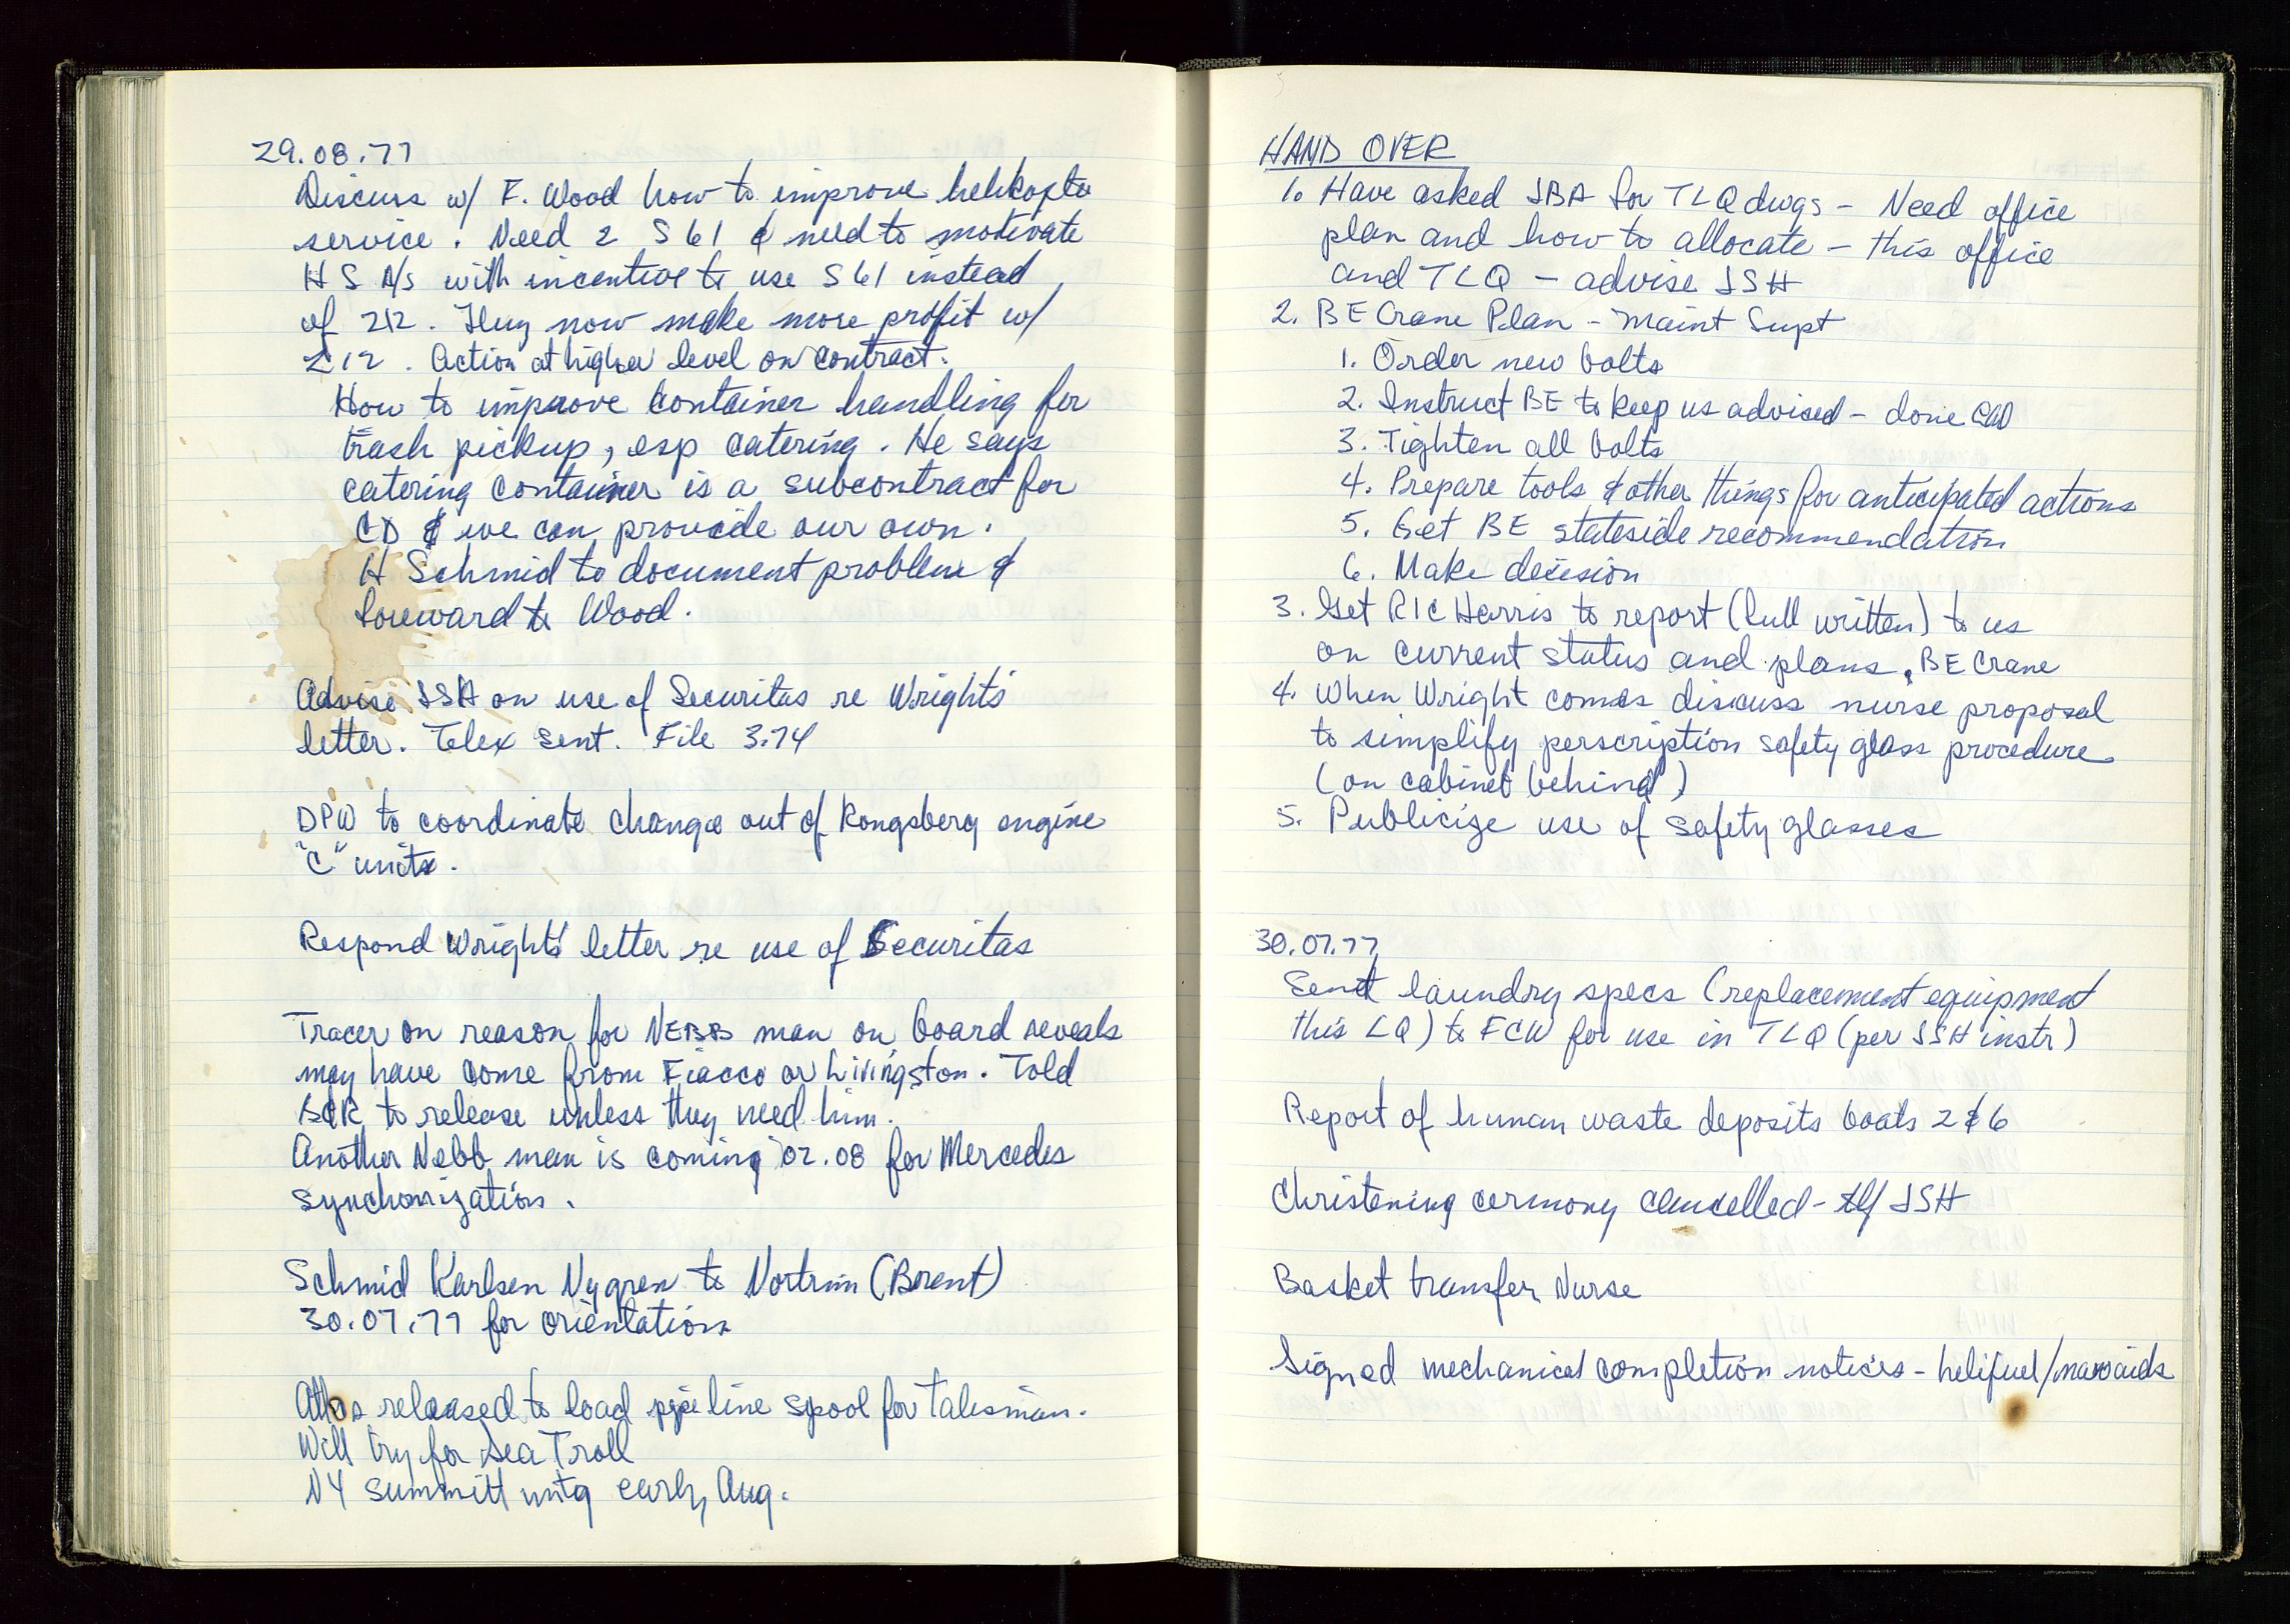 29.08.77
Discuss w/ F. Wood how to improve helikopter
service. Need 2 S61 & need to motivate
HS A/S with incentive to use S61 instead
of 212. They now make more profit w/
212. Action at higher level on contract.
How to improve container handling for
trash pickup, esp catering. He says
catering container is a subcontract for
CD & we can provide our own.
H Schmid to document problem &
foreward to Wood.
Advise JSH on use of Securitas re Wrights'
letter. Telex sent. File 3.74
DPW to coordinate change out of Kongsberg engine
"C" units.
Respond Wrights' letter re use of Securitas
Tracer on reason for NEBB man on board reveals
may have come from Fiacco or Livingston. Told
BCR to release unless they need him.
Another Nebb man is coming 02.08 for Mercedes
synchonization.
Schmid Karlsen Nygren to Nortrim (Brent)
30.07.77 for orientation
Athos released to load pipeline spool for Talisman.
Will try for Sea Troll
NY summitt mtg early Aug.
HAND OVER
1. Have asked JBA for TLQ dwgs - Need office
plan and how to allocate - this office
and TLQ - advise JSH
2. BE Crane Plan - Maint Supt
1. Order new bolts
2. Instruct BE to keep us advised - done
3. Tighten all bolts
4. Prepare tools & other things for anticipated actions
5. Get BE stateside recommendation
6. Make decision
3. Get RIC Harris to report (full written) to us
on current status and plans, BE Crane
4. When Wright comes discuss nurse proposal
to simplify perscription safety glass procedure
(on cabinet behind)
5. Publicize use of safety glasses
30.07.77
Send laundry specs (replacement equipment
this LQ) to FCW for use in TLQ (per JSH instr)
Report of human waste deposits boats 2 & 6
Christening cermony cancelled - tlf JSH
Basket transfer Nurse
Signed mechanical completion notices - helifuel/navaids